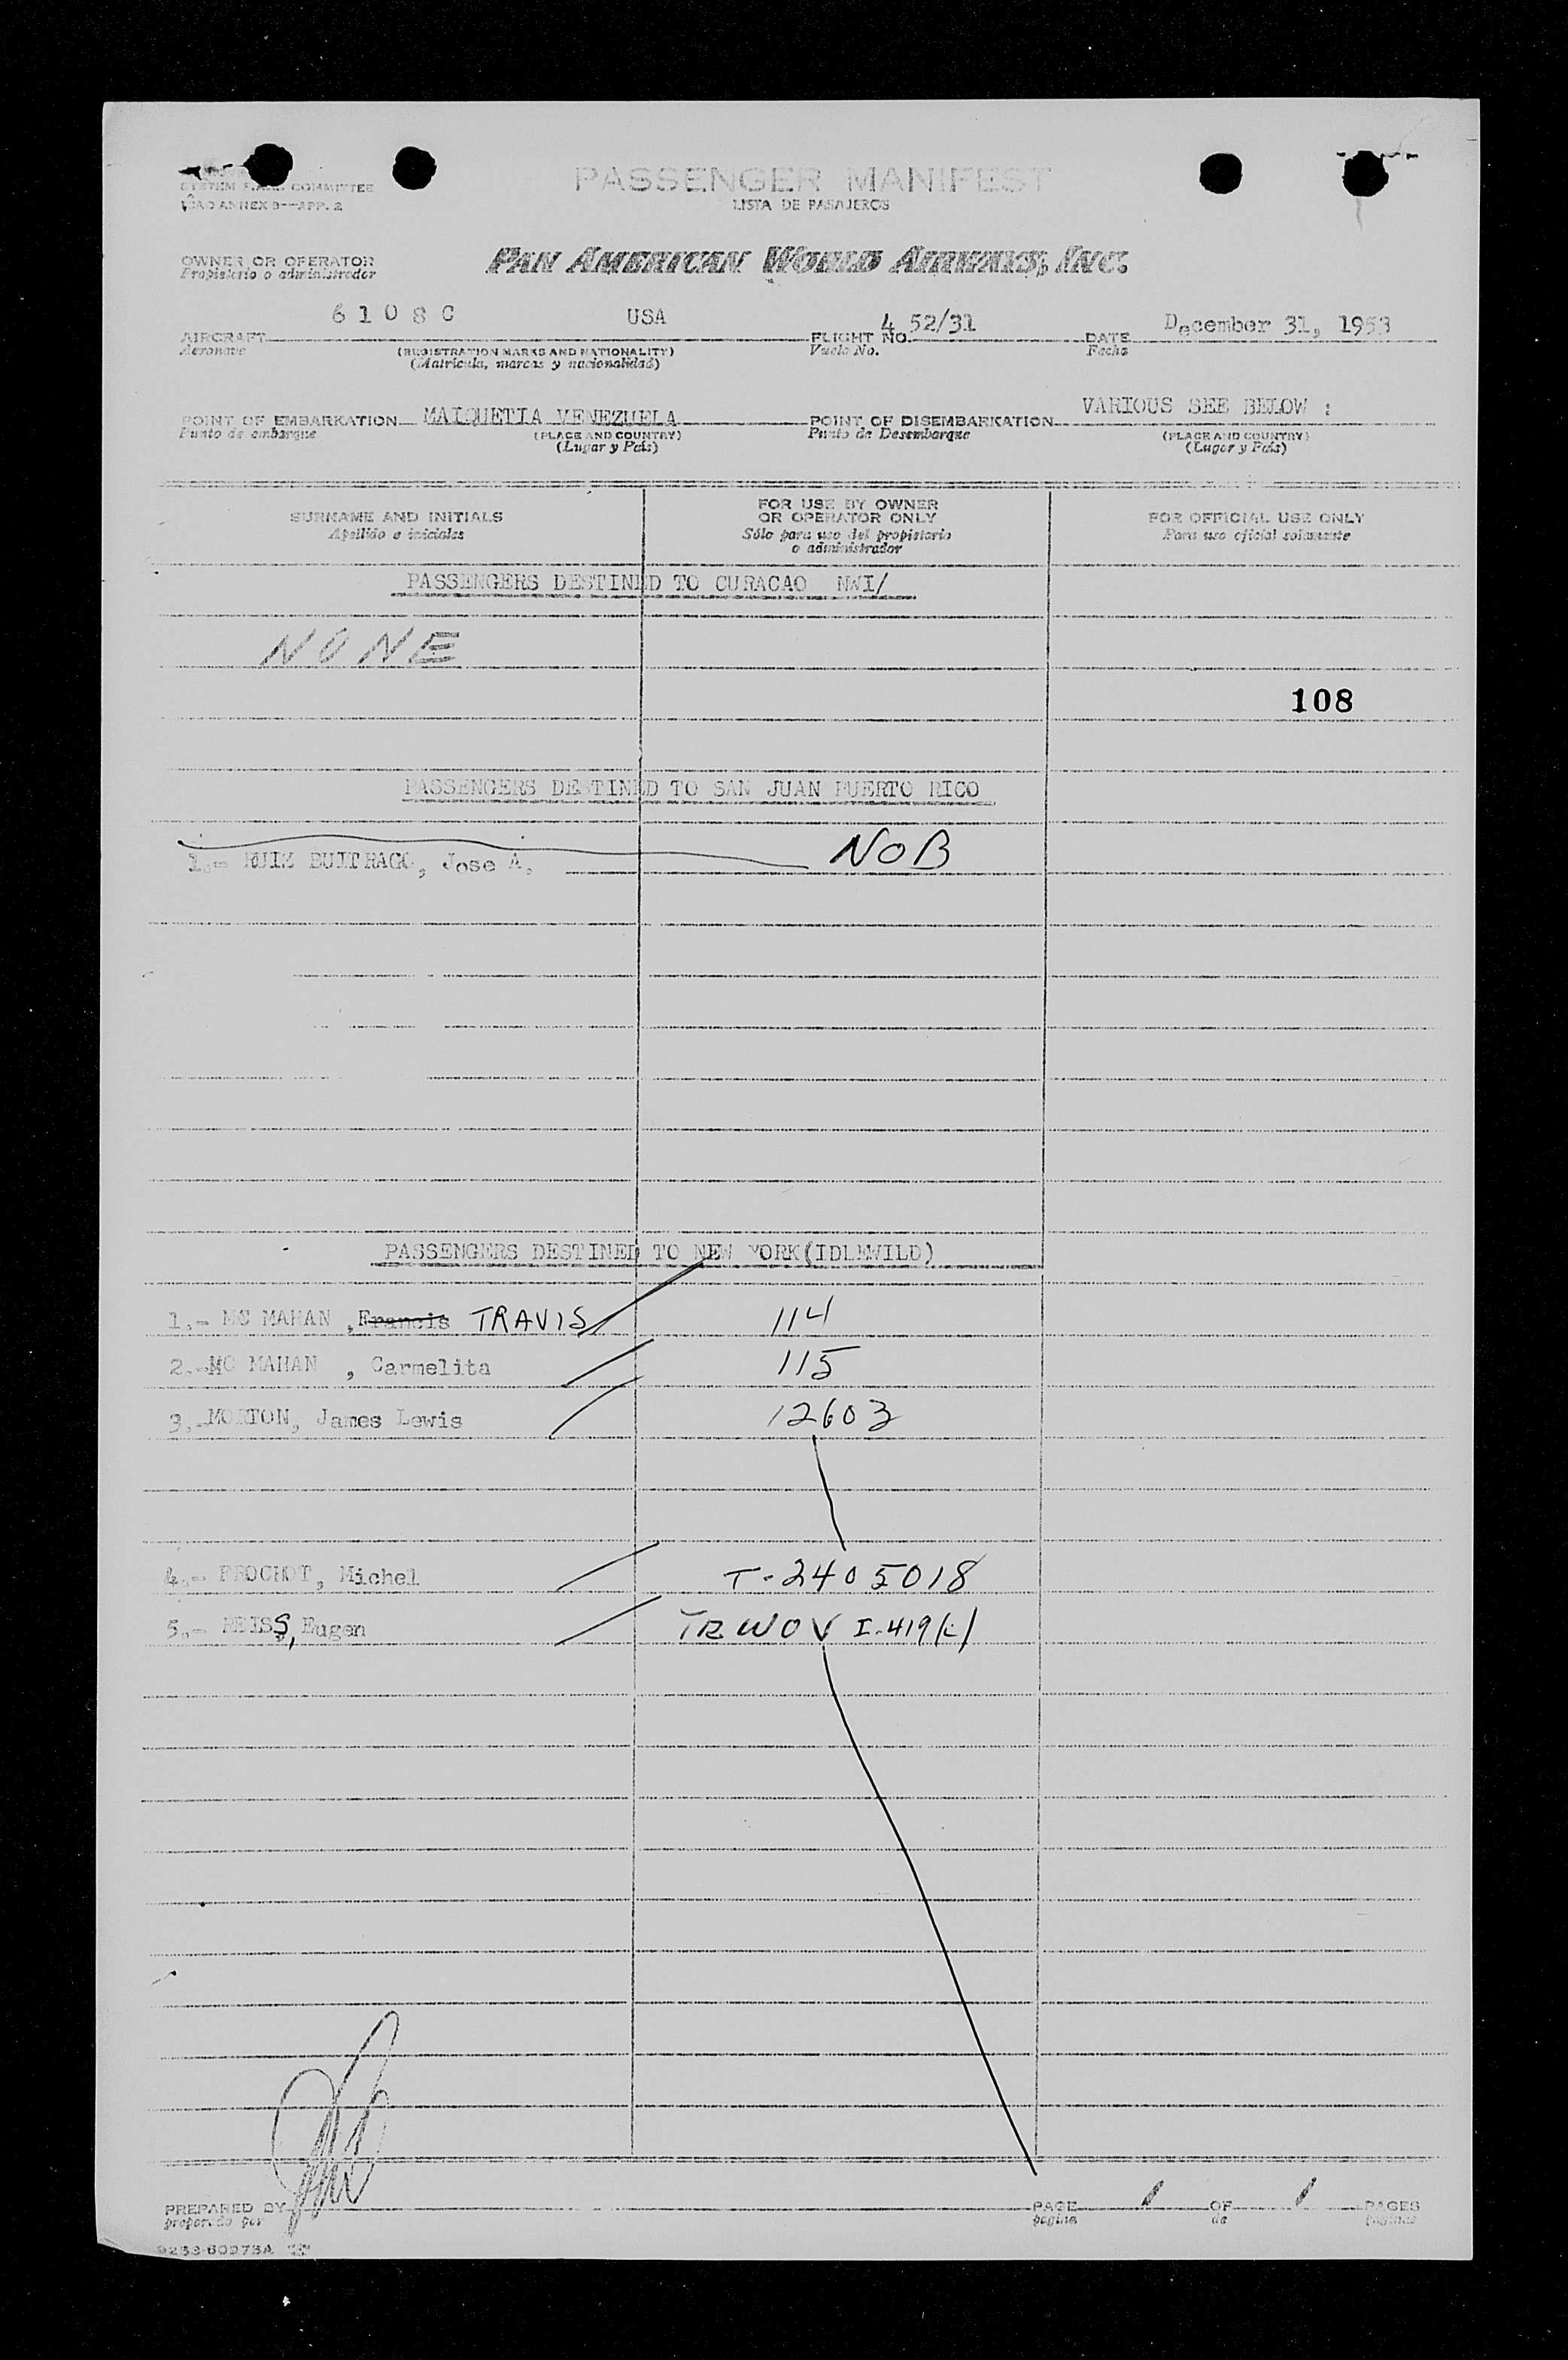 SYSTEM COMMITTEE
ICAO ANNEX 9—APP. 2
PASSENGER MANIFEST
LISTA DE PASAJEROS
OWNER OR OPERATOR
Propietario o administrador
PAN AMERICAN WORLD AIRWAYS, INC.
AIRCRAFT 6108C USA FLIGHT NO. 4 52/31 DATE December 31, 1953
Aeronave (REGISTRATION MARKS AND NATIONALITY) Vuelo No. Fecha
(Matrícula, marcas y nacionalidad)
POINT OF EMBARKATION MAIQUETIA VENEZUELA POINT OF DISEMBARKATION VARIOUS SEE BELOW :
Punto de embarque (PLACE AND COUNTRY) Punto de Desembarque (PLACE AND COUNTRY)
(Lugar y País) (Lugar y País)
SURNAME AND INITIALS
Apellido e iniciales
FOR USE BY OWNER
OR OPERATOR ONLY
Sólo para uso del propietario
o administrador
FOR OFFICIAL USE ONLY
Para uso oficial solamente
PASSENGERS DESTINED TO CURACAO NWI/
NONE
108
PASSENGERS DESTINED TO SAN JUAN PUERTO RICO
1.- RUIZ BUITRAGO, Jose A. NOB
PASSENGERS DESTINED TO NEW YORK(IDLEWILD)
1.- MC MAHAN ,Francis TRAVIS 114
2.-MC MAHAN , Carmelita 115
3.-MORTON, James Lewis 12603
4.- FROCHOT, Michel T-2405018
5.- REISS, Eugen TRWOV I-419(c)
PREPARED BY PAGE 1 OF 1 PAGES
preparado por página de páginas
9253-60973A